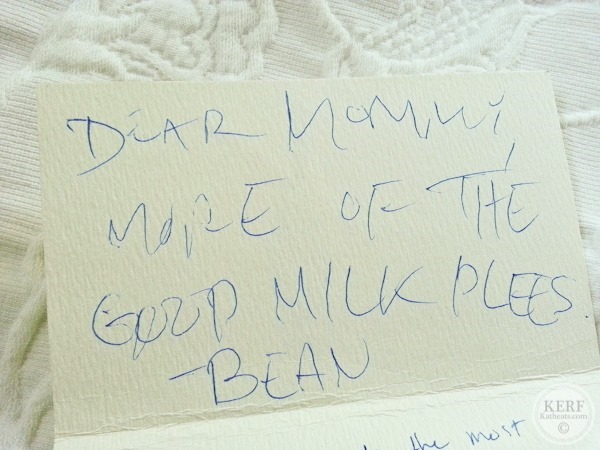 DEAR MOMMI,
MORE OF THE
GOOD MILK PLEES.
-BEAN
the most
KERF
Katheats.com
©